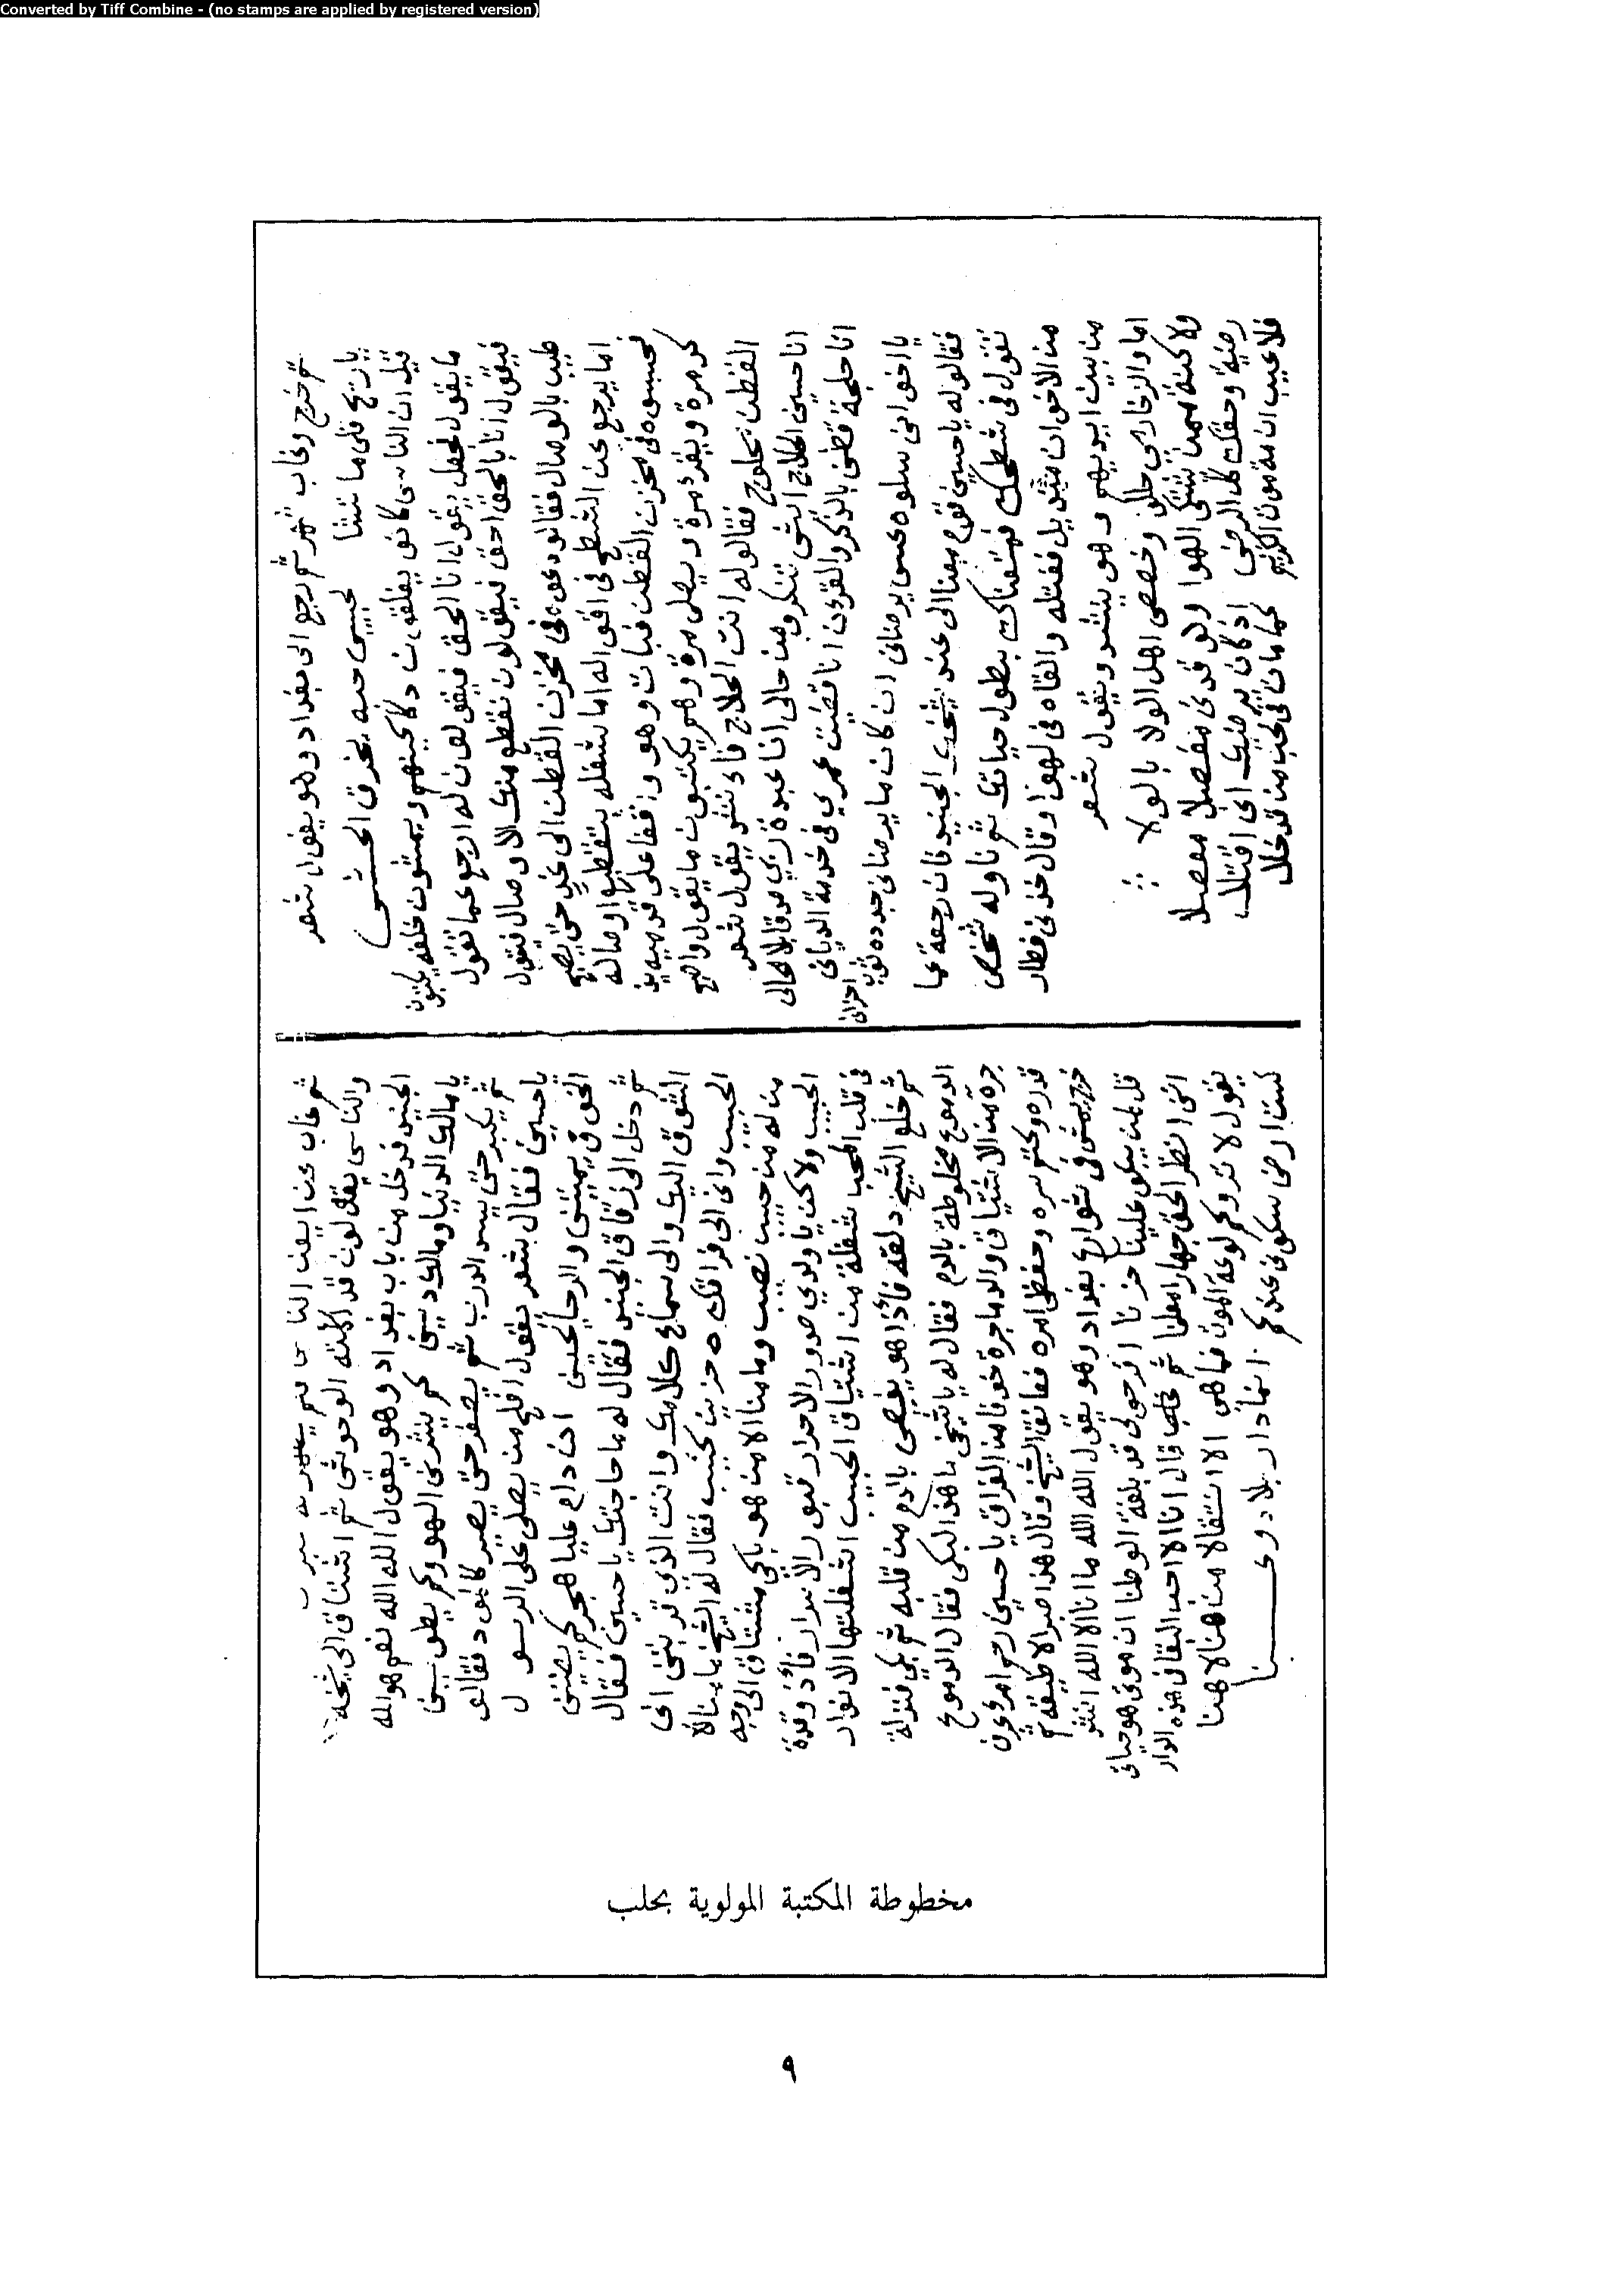 Converted by Tiff Combine - (no stamps are applied by registered version)
ثم خرج وغاب شهر ثم رجع الى بغداد وهو يقول شعر
يا ريح قلى ما تشا لحبيبى حبه بخرق الحشى
قيل ان الناس كانو يغلقون دكاكينهم ويمشون خلفه يكتبون
ما يقول فجعل يقول انا الحق فيقولون له ارجع عما تقول
فيقول انا بالحق احق فيقولون نقطع منك الاوصال فيقول
طيب بالوصال فقالو دعوه فى مخزن القطن الى غد حتى يصبح
اما يرجع عن الشطح فى اقواله اما نشغله بتقطيع اوصاله
فحبسوه فى مخزن القطن فبات وهو واقفا على قدميه
كم مرة ويقرء مرة ويصلى مرة وهم يكتبون ما يقول واصبح
القطن محلوج فقالو له انت الحلاج فانشد يقول شعر
انا حسين الحلاج انشى تنكرو من حالى انا عبدة ربى مو قابلا لحالى
انا حلجة قطنى بالذكر والقرءن انا قضيت عمرى فى خدمة الديانى
يا اخوانى سلوه عسى يرضانى ان كان ما يرضانى جددة ثوب احزانى
فقالو له يا حسين قوم معنا الى عند شيخك الجنيد فان رجعة عما
تقول فى شطحك فهتفناك بطول حياتك ثم ناوله شخص
من الاخوان منديل ففتله والقاه فى الهوا وقال خذنى فطار
من بين ايديهم وهو ينشد ويقول شعر
اما والذى حلكو وخصى اهل الولا بالولا
ولاكنة ممن يشتكى الهوا ولو قدى مفصلا مفصلا
رضية وحقك كل الرضى اذ كان يرضيك انى اقتلا
فلا عيب ان مة موت الكريم كما مات فى الحب من قد خلا
ثم غاب عن اعين الناس
والناس يقولون قد اكلته الوحوش ثم اشتاق الى شيخه
الجنيد فدخل من باب بغداد وهو يقول الله الله نعم هو الله
يا مالك الدنيا ومالك دينى كم ينشرنى الهوا وكم يطوينى
ثم يكبر حتى يسد الدرب ثم يصغر حتى يصير كالعود فقالو
يا حسين فقال بشعر يقول افلح من يصلى على الرسول
الخوف يميتنى والرجا يحيينى ان دام عليا هجركم يضنينى
ثم دخل الى زقاق الجنيد فقال له ما حاجتك يا حسين فقال
الشوق اليك والى سماع كلامك وانت الذى قربتنى الى
الحبيب ودانى الى فراقك ه حزين كئيب فقال له الشيخ ما منا الا
من له من حبيب نصيب وما منا الا من هو باكى مشتاق الى وجه
الحبيب ولاكن يا ولدى صدور الاحرار قبور الاسرار فاذ وقدة
فى قلب المحب شعلة من اشتياق الحبيب اشعلتها الانوار
ثم خلع الشيخ دلقه فاذا هو يفيض بالدم من قلبه ثم بكى فنزلة
الدموع مخلوطة بالدم فقال له يا شيخى ما هذا البكى فقال الدموع
جرة من الاشتياق والدما جرة خوفا من الفراق يا حسين رحم امرء عرف
قدره وكتم سره وحفظ امره فعانق الشيخ وقال هذا ضرا لا طيقه ثم
خرج يمشى فى شوارع بغداد وهو يقول الله الله ما انا الا الله انشد
قل لمن يبكو علينا حزنا افرحو لى قد بلغة الوطنا ان موتى هو حياتى
انى انظر الحق جهارا معلنا ثم غاب قال انا لا احب البقا فى هذه الدار
يقول لا تروعكم لوعة الموت فما هى الا انتقالا من هنا لاهنا
لست ارضى سكونى عندكم انما دار بلادى
مخطوطة المكتبة المولوية بحلب
٩